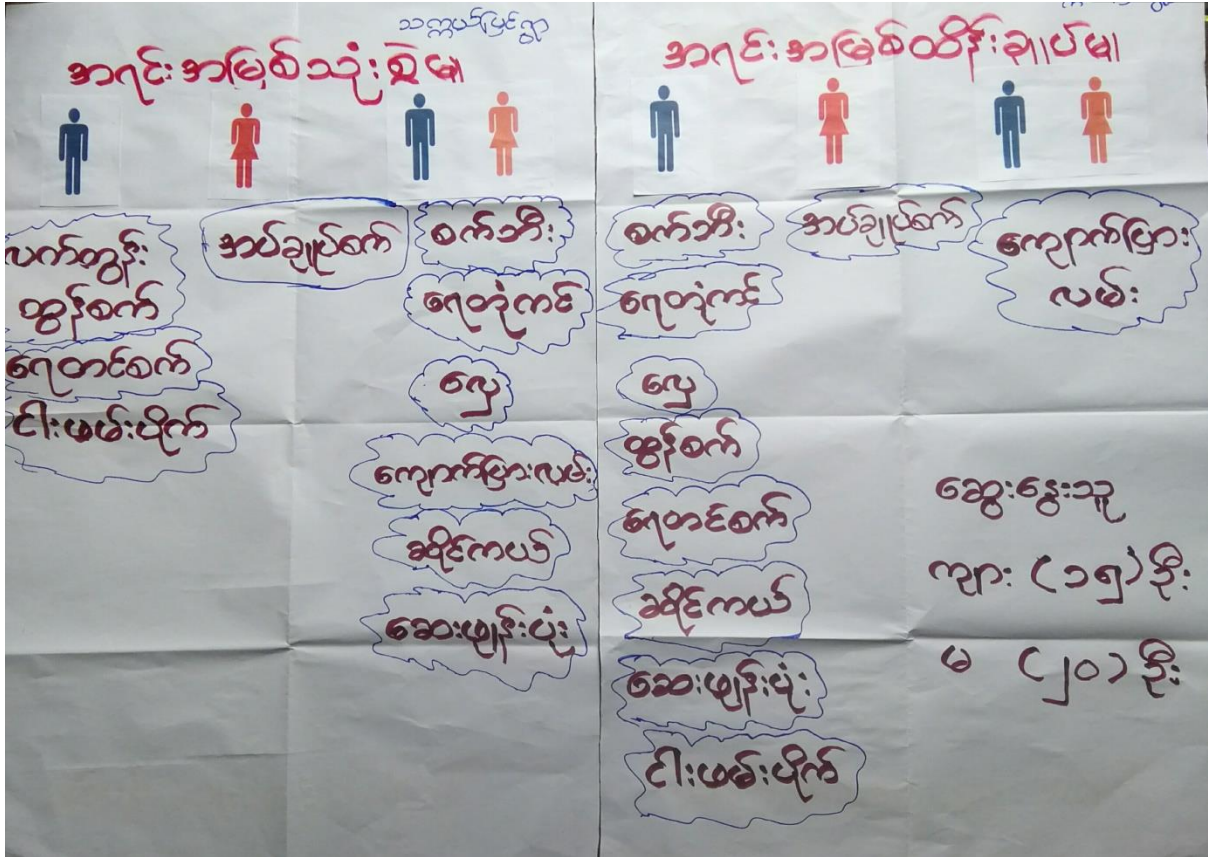 သက္ကယ်ပြင်ရွာ
အရင်းအမြစ်သုံးစွဲမှု
လက်တွန်း
ထွန်စက်
ရေတင်စက်
ငါးဖမ်းပိုက်
အပ်ချုပ်စက်
စက်ဘီး
ရေတုံကင်
လှေ
ကျောက်ပြားလမ်း
ဆိုင်ကယ်
ဆေးဖျန်းပုံး
အရင်းအမြစ်ထိန်းချုပ်မှု
စက်ဘီး
ရေတုံကင်
လှေ
ထွန်စက်
ရေတင်စက်
ဆိုင်ကယ်
ဆေးဖျန်းပုံး
ငါးဖမ်းပိုက်
အပ်ချုပ်စက်
ကျောက်ပြား
လမ်း
ဆွေးနွေးသူ
ကျား (၁၅) ဦး
မ (၂၀) ဦး